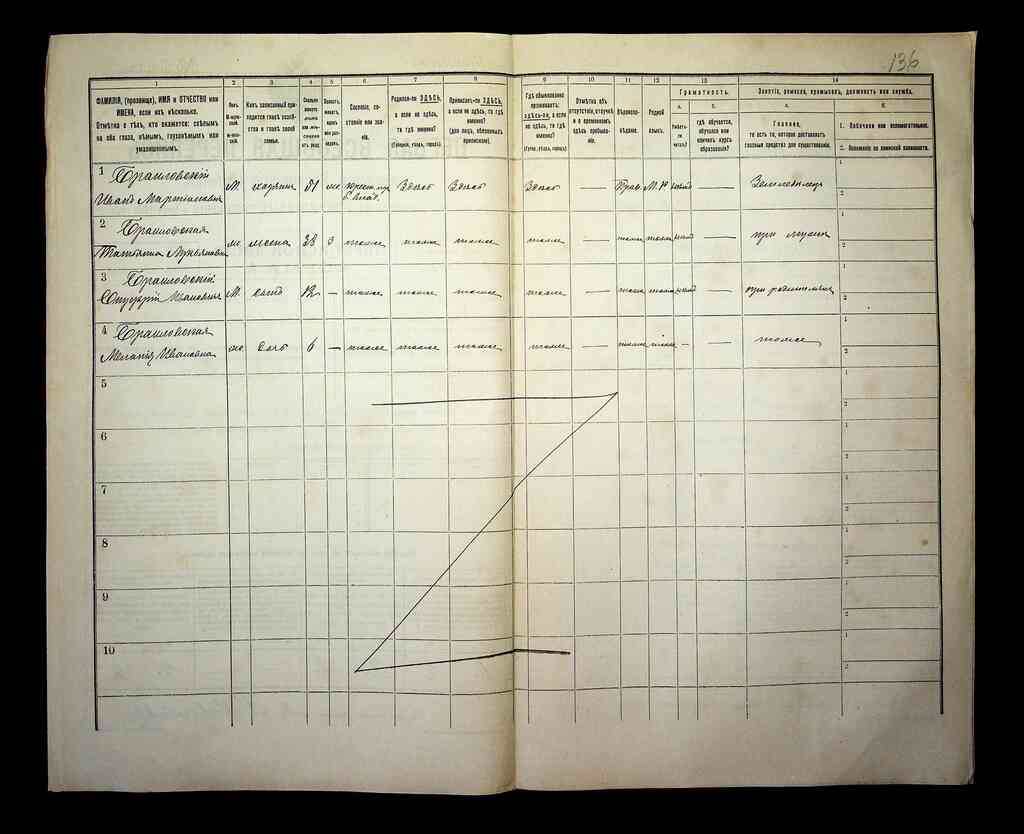 136
1 2 3 4 5 6 7 8 9 10 11 12 13 14
ФАМИЛІЯ, (прозвище), ИМЯ и ОТЧЕСТВО или
ИМЕНА, если ихъ нѣсколько.
Отмѣтка о тѣхъ, кто окажется: слѣпымъ
на оба глаза, нѣмымъ, глухонѣмымъ или
умалишеннымъ.
Полъ.
Какъ записанный при-
ходится главѣ хозяй-
ства и главѣ своей
семьи.
Сословіе, со-
стояніе или зва-
ніе.
Родился-ли ЗДѢСЬ,
а если не здѣсь,
то гдѣ именно?
(Губернія, уѣздъ, городъ).
Приписанъ-ли ЗДѢСЬ,
а если не здѣсь, то гдѣ
именно?
(для лицъ, обязанныхъ
припискою).
Гдѣ обыкновенно
проживаетъ:
здѣсь-ли, а если
не здѣсь, то гдѣ
именно?
(Губер., уѣздъ, городъ).
Отмѣтка объ
отсутствіи, отлучкѣ
и о временномъ
здѣсь пребыва-
ніи.
Вѣроиспо-
вѣданіе.
Родной
языкъ.
Грамотность.
а. б.
Умѣетъ-
ли
читать?
гдѣ обучается,
обучался или
кончилъ курсъ
образованія?
Занятіе, ремесло, промыселъ, должность или служба.
а. б.
Главное,
то есть то, которое доставляетъ
главныя средства для существованія.
1. Побочное или вспомогательное.
2. Положеніе по воинской повинности.
1 Браиловскій
Иванъ Мартиновичъ М. хозяинъ 51 Здѣсь Здѣсь Здѣсь — Прав. М. Р — Земледѣлецъ
2 Браиловская
Татьяна Лукьяновна ж. жена 38 3 тоже тоже тоже тоже — тоже тоже — при мужѣ
3 Браиловскій
Онуфрій Ивановичъ М. сынъ 12 — тоже тоже тоже тоже — тоже тоже — при родителяхъ
4 Браиловская
Меланія Ивановна ж. дочь 6 — тоже тоже тоже тоже — тоже тоже — — тоже
5
6
7
8
9
10